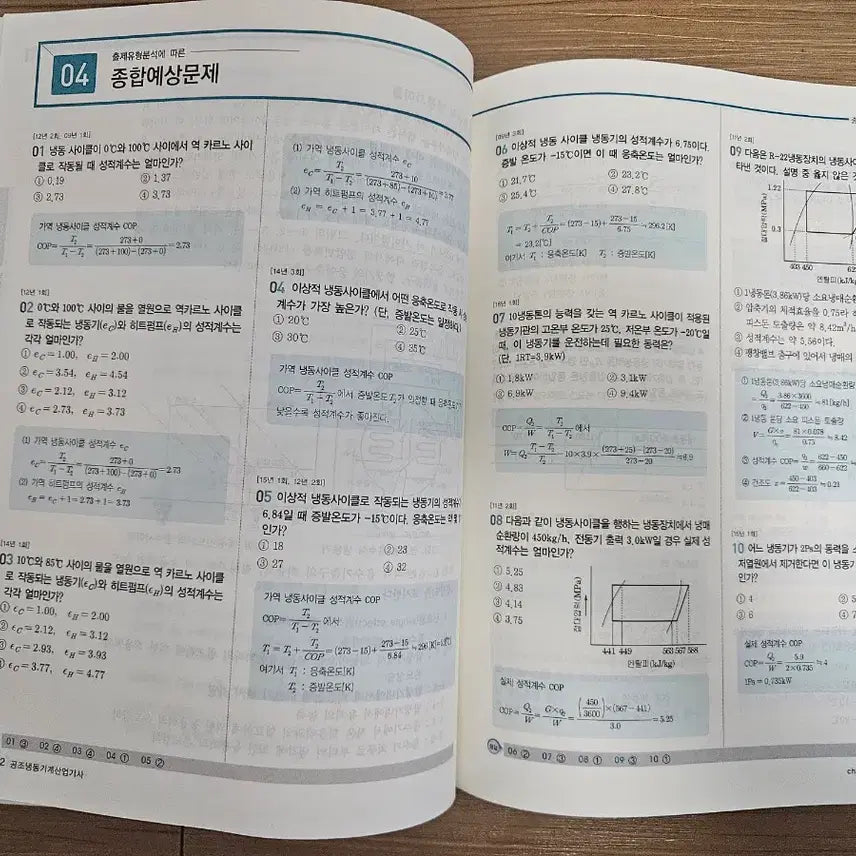 04
출제유형분석에 따른
종합예상문제
[12년 2회, 09년 1회]
01 냉동 사이클이 0℃와 100℃ 사이에서 역 카르노 사이
클로 작동될 때 성적계수는 얼마인가?
① 0.19 ② 1.37
③ 2.73 ④ 3.73
역 카르노 냉동사이클 성적계수 COP
COP= T₂/(T₁-T₂) = (273+0)/((273+100)-(273+0)) =2.73
[12년 1회]
02 0℃와 100℃ 사이의 물을 열원으로 역카르노 사이클
로 작동되는 냉동기(ϵC)와 히트펌프(ϵH)의 성적계수는
각각 얼마인가?
① ϵC=1.00, ϵH=2.00
② ϵC=3.54, ϵH=4.54
③ ϵC=2.12, ϵH=3.12
④ ϵC=2.73, ϵH=3.73
(1) 가역 냉동사이클 성적계수 ϵC
ϵC= T₂/(T₁-T₂) = (273+0)/((273+100)-(273+0)) =2.73
(2) 가역 히트펌프의 성적계수 ϵH
ϵH=ϵC+1=2.73+1=3.73
[14년 1회]
03 10℃와 85℃ 사이의 물을 열원으로 역 카르노 사이클
로 작동되는 냉동기(ϵC)와 히트펌프(ϵH)의 성적계수는
각각 얼마인가?
① ϵC=1.00, ϵH=2.00
② ϵC=2.12, ϵH=3.12
③ ϵC=2.93, ϵH=3.93
④ ϵC=3.77, ϵH=4.77
(1) 가역 냉동사이클 성적계수 ϵC
ϵC= T₂/(T₁-T₂) = (273+10)/((273+85)-(273+10)) =3.77
(2) 가역 히트펌프의 성적계수 ϵH
ϵH=ϵC+1=3.77+1=4.77
[14년 3회]
04 이상적 냉동사이클에서 어떤 응축온도로 작동 시 성
계수가 가장 높은가? (단, 증발온도는 일정하다)
① 20℃ ② 25℃
③ 30℃ ④ 35℃
가역 냉동사이클 성적계수 COP
COP= T₂/(T₁-T₂) 에서 증발온도 T₂가 일정할 때 응축온도가
낮을수록 성적계수가 좋아진다.
[15년 1회, 12년 2회]
05 이상적 냉동사이클로 작동되는 냉동기의 성적계수
6.84일 때 증발온도가 -15℃이다. 응축온도는 몇 ℃
인가?
① 18 ② 23
③ 27 ④ 32
가역 냉동사이클 성적계수 COP
COP= T₂/(T₁-T₂) 에서
T₁=T₂+ T₂/COP =(273-15)+ (273-15)/6.84
여기서 T₁ : 응축온도[K]
T₂ : 증발온도[K]
01 ③ 02 ④ 03 ④ 04 ① 05 ②
2 공조냉동기계산업기사
[09년 3회]
06 이상적 냉동 사이클 냉동기의 성적계수가 6.75이다.
증발 온도가 -15℃이면 이 때 응축온도는 얼마인가?
① 21.7℃ ② 23.2℃
③ 25.4℃ ④ 27.8℃
T₁=T₂+ T₂/COP =(273-15)+ (273-15)/6.75 ≒296.2[K]
=23.2[℃]
여기서 T₁ : 응축온도[K] T₂ : 증발온도[K]
07 10냉동톤의 능력을 갖는 역 카르노 사이클이 적용된
냉동기관의 고온부 온도가 25℃, 저온부 온도가 -20℃일
때, 이 냉동기를 운전하는데 필요한 동력은?
(단, 1RT=3.9kW)
① 1.8kW ② 3.1kW
③ 6.9kW ④ 9.4kW
COP= Q₂/W = T₂/(T₁-T₂) 에서
W=Q₂ (T₁-T₂)/T₂ =10×3.9× ((273+25)-(273-20))/(273-20) ≒6.9
[11년 2회]
08 다음과 같이 냉동사이클을 행하는 냉동장치에서 냉매
순환량이 450kg/h, 전동기 출력 3.0kW일 경우 실제 성
적계수는 얼마인가?
① 5.25
② 4.83
③ 4.14
④ 3.75
절대압력(MPa)
441 449 563 567 588
엔탈피(kJ/kg)
실제 성적계수 COP
COP= Q₂/W = G×q₂/W = (450/3600)×(567-441)/3.0 =5.25
06 ② 07 ③ 08 ① 09 ③ 10 ①
09 다음은 R-22냉동장치의 냉동사
타낸 것이다. 설명 중 옳지 않은 것
1.22
0.3
403 450
엔탈피(kJ/k
① 1냉동톤(3.86kW)당 소요냉매순
② 압축기의 체적효율을 0.75라 하
피스톤 토출량은 약 8.42m³/h
③ 성적계수는 약 5.56이다.
④ 팽창밸브 출구에 있어서 냉매의
① 1냉동톤(3.86kW)당 소요냉매순환량
= 3.86×3600/(622-450) ≒81[kg/h]
② 1냉동 톤당 소요 피스톤 토출량
V= G×v/η = 81×0.078/0.75 ≒8.42
③ 성적계수 COP= (622-450)/(660-622)
④ 건조도 x= (450-403)/(622-403) ≒0.21
10 어느 냉동기가 2Ps의 동력을 소
저열원에서 제거한다면 이 냉동기
인가?
① 4 ② 5
③ 6 ④ 7
실제 성적계수 COP
COP= Q₂/W = 5.9/(2×0.735) ≒4
1Ps=0.735kW